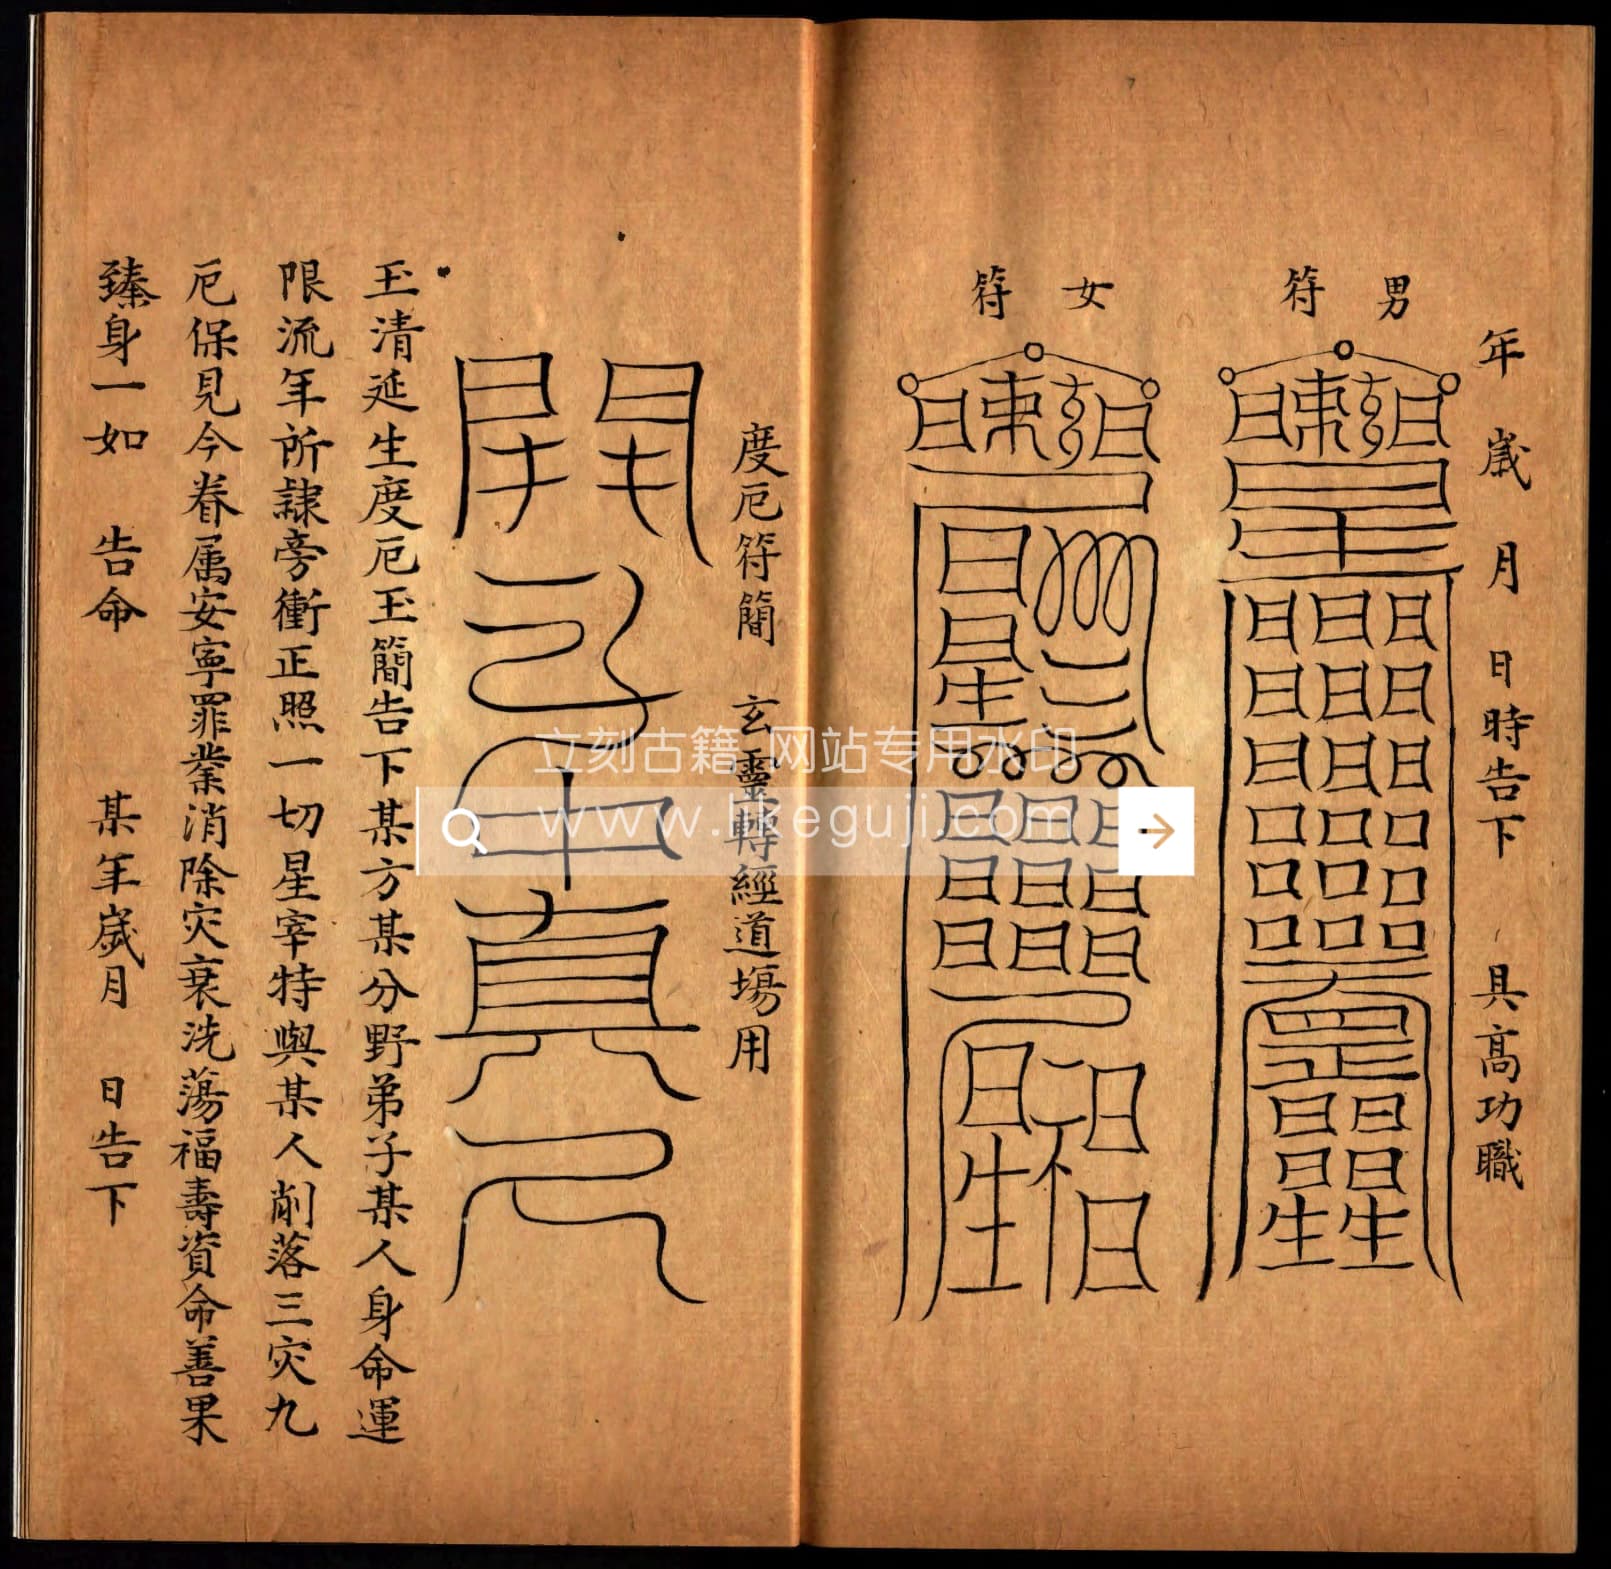 年歲月日時告下 具高功職
男符
女符
度厄符簡 玄靈轉經道場用
玉清延生度厄玉簡告下某方某分野弟子某人身命運
限流年所隷旁衝正照一切星宰特與某人削落三灾九
厄保見今眷属安寧罪業消除灾衰洗蕩福壽資命善果
臻身一如 告命 某年歲月 日告下
立刻古籍 网站专用水印
www.lkeguji.com